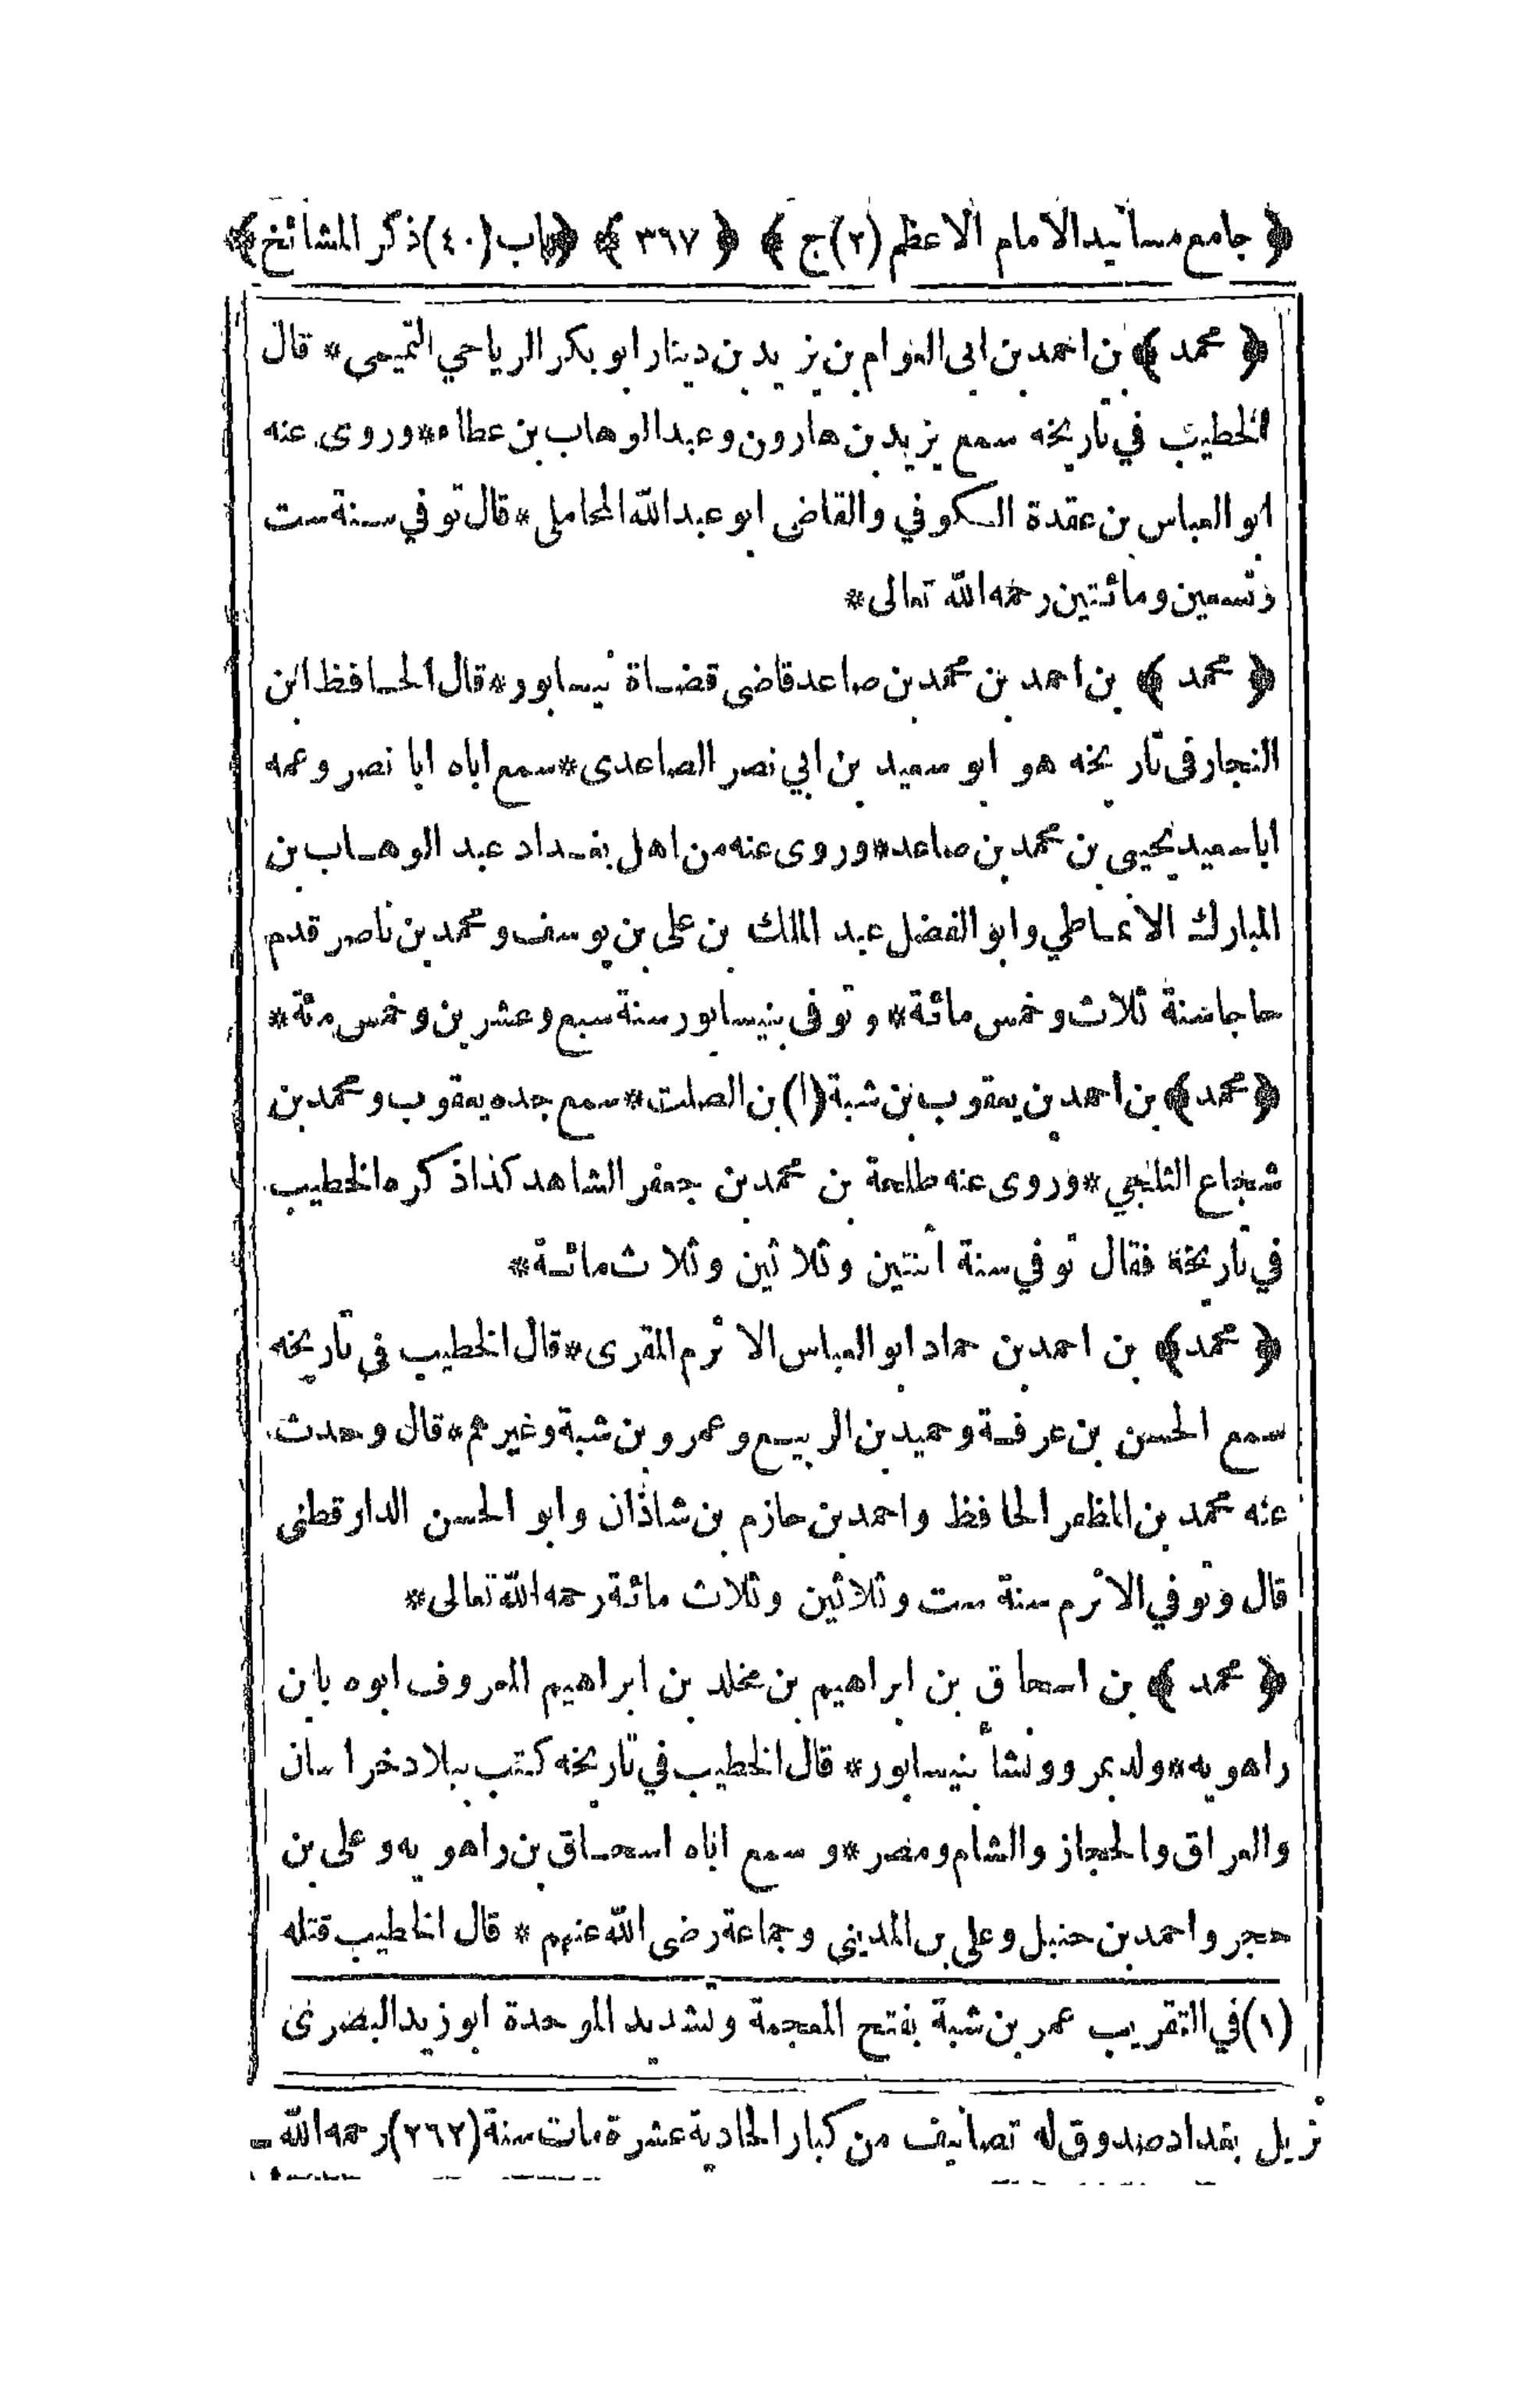 ﴿ جامع مسانيد الامام الاعظم (٢) ج ﴾ ﴿ ٣٩٧ ﴾ ﴿ باب (٤٠) ذكر المشائخ ﴾
﴿ محمد ﴾ بن احمد بن ابى العوام بن يزيد بن دينار ابو بكر الرياحي التميمى * قال
الخطيب في تاريخه سمع يزيد بن هارون وعبد الوهاب بن عطاء * وروى عنه
ابو العباس بن عقدة الكوفي والقاضى ابو عبد الله المحاملى * قال توفي سنة ست
وتسعين ومائتين رحمه الله تعالى *
﴿ محمد ﴾ بن احمد بن محمد بن صاعد قاضى قضاة نيسابور * قال الحافظ ابن
النجار فى تاريخه هو ابو سعيد بن ابي نصر الصاعدى * سمع اباه ابا نصر وعمه
ابا سعيد يحيى بن محمد بن صاعد * وروى عنه من اهل بغداد عبد الوهاب بن
المبارك الانماطي وابو الفضل عبد الملك بن على بن يوسف ومحمد بن ناصر قدم
حاجا سنة ثلاث وخمس مائة * وتوفى بنيسابور سنة سبع وعشرين وخمس مئة *
﴿ محمد ﴾ بن احمد بن يعقوب بن شبة (١) بن الصلت * سمع جده يعقوب ومحمد بن
شجاع الثلجي * وروى عنه طلحة بن محمد بن جعفر الشاهد كذا ذكره الخطيب
في تاريخه فقال توفي سنة اثنتين وثلاثين وثلاث مائة *
﴿ محمد ﴾ بن احمد بن حماد ابو العباس الاثرم المقرى * قال الخطيب فى تاريخه
سمع الحسن بن عرفة وحميد بن الربيع وعمرو بن شبة وغيرهم * قال وحدث
عنه محمد بن المظفر الحافظ واحمد بن حازم بن شاذان وابو الحسن الدارقطنى
قال وتوفي الاثرم سنة ست وثلاثين وثلاث مائة رحمه الله تعالى *
﴿ محمد ﴾ بن اسحاق بن ابراهيم بن مخلد بن ابراهيم المعروف ابوه بابن
راهويه * ولد بمرو ونشأ بنيسابور * قال الخطيب في تاريخه كتب ببلاد خراسان
والعراق والحجاز والشام ومصر * وسمع اباه اسحاق بن راهويه وعلى بن
حجر واحمد بن حنبل وعلى بن المدينى وجماعة رضى الله عنهم * قال الخطيب قتله
(١) في التقريب عمر بن شبة بفتح المعجمة وتشديد الموحدة ابو زيد البصرى
نزيل بغداد صدوق له تصانيف من كبار الحادية عشرة مات سنة (٢٦٢) رحمه الله ــ